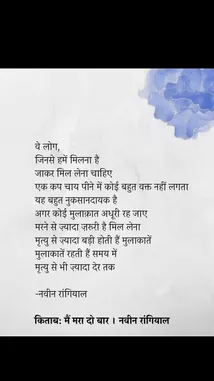 वे लोग,
जिनसे हमें मिलना है
जाकर मिल लेना चाहिए
एक कप चाय पीने में कोई बहुत वक्त नहीं लगता
यह बहुत नुकसानदायक है
अगर कोई मुलाक़ात अधूरी रह जाए
मरने से ज़्यादा ज़रुरी है मिल लेना
मृत्यु से ज़्यादा बड़ी होती हैं मुलाकातें
मुलाकातें रहती हैं समय में
मृत्यु से भी ज़्यादा देर तक
-नवीन रांगियाल
किताब: मैं मरा दो बार । नवीन रांगियाल